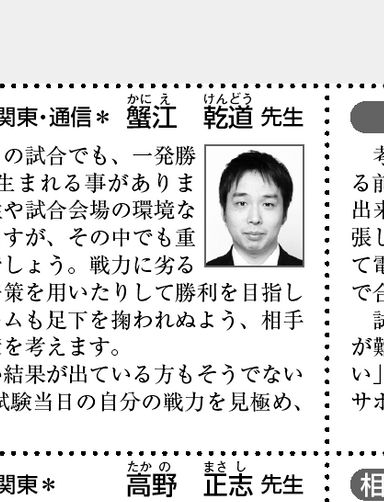 かにえ けんどう
関東・通信＊ 蟹江 乾道 先生
の試合でも、一発勝
生まれる事がありま
や試合会場の環境な
すが、その中でも重
でしょう。戦力に劣る
策を用いたりして勝利を目指し
ムも足下を掬われぬよう、相手
を考えます。
結果が出ている方もそうでない
試験当日の自分の戦力を見極め、
たかの まさし
関東＊ 高野 正志 先生
考
る前
出来
張し
て電
で合
試
が難
い」
サポ
相